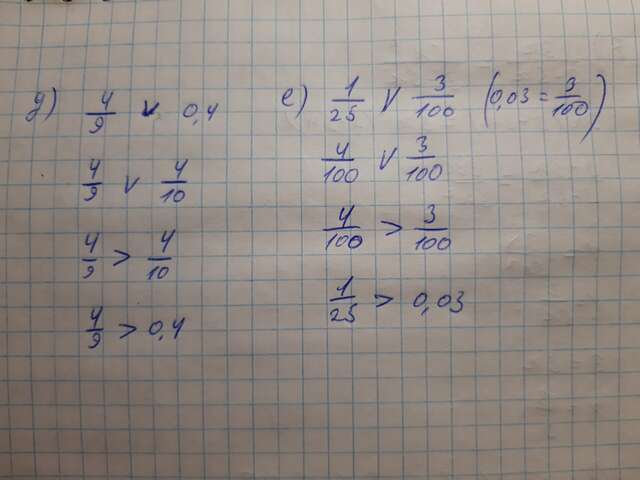 д) 4/9 v 0,4
4/9 v 4/10
4/9 > 4/10
4/9 > 0,4
е) 1/25 v 3/100 (0,03 = 3/100)
4/100 v 3/100
4/100 > 3/100
1/25 > 0,03